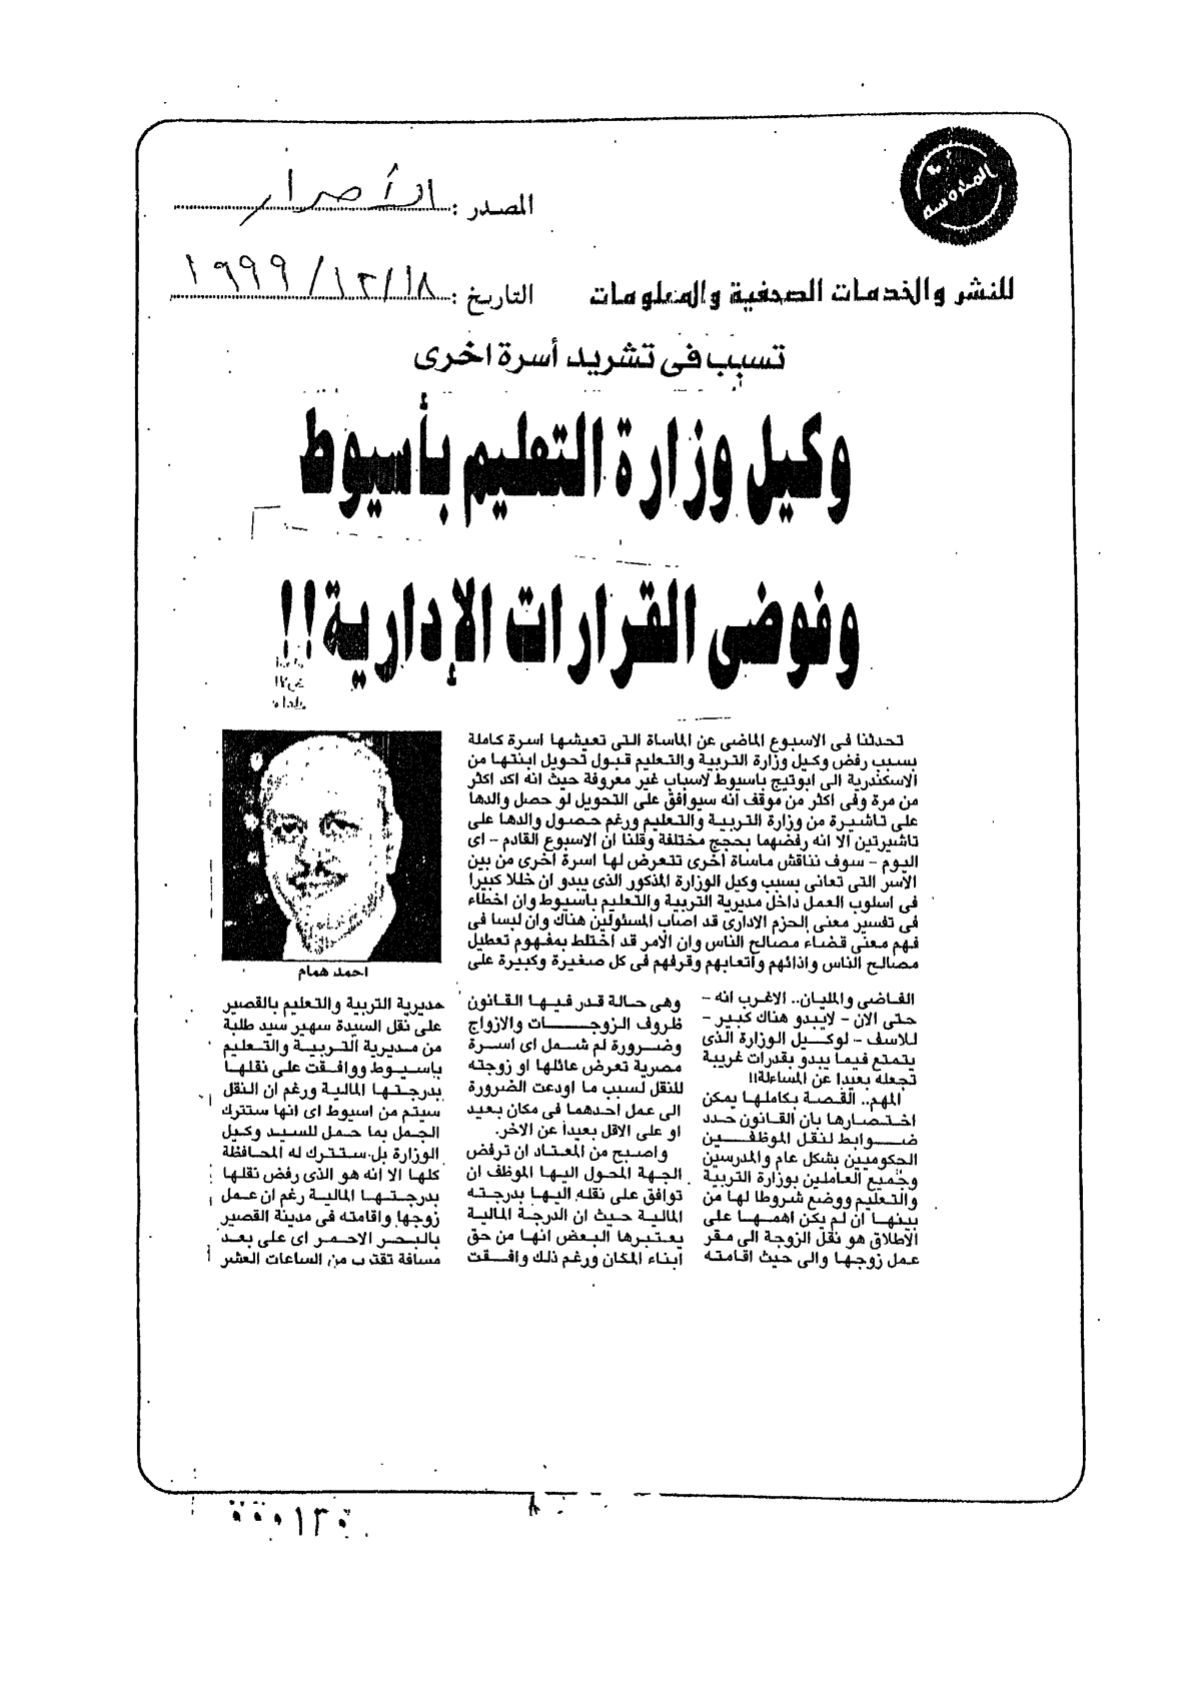 المدروسه
المصدر : الأحرار
للنشر والخدمات الصحفية والمعلومات
التاريخ : ١٨/١٢/١٩٩٩
تسبب فى تشريد أسرة اخرى
وكيل وزارة التعليم بأسيوط
وفوضى القرارات الإدارية!!
تحدثنا فى الاسبوع الماضى عن الماساة التى تعيشها اسرة كاملة
بسبب رفض وكيل وزارة التربية والتعليم قبول تحويل ابنتها من
الاسكندرية الى ابوتيج باسيوط لاسباب غير معروفة حيث انه اكد اكثر
من مرة وفى اكثر من موقف انه سيوافق على التحويل لو حصل والدها
على تاشيرة من وزارة التربية والتعليم ورغم حصول والدها على
تاشيرتين الا انه رفضهما بحجج مختلفة وقلنا ان الاسبوع القادم - اى
اليوم - سوف نناقش ماساة أخرى تتعرض لها اسرة اخرى من بين
الأسر التى تعانى بسبب وكيل الوزارة المذكور الذى يبدو ان خللا كبيرا
فى اسلوب العمل داخل مديرية التربية والتعليم باسيوط وان اخطاء
فى تفسير معنى الحزم الادارى قد اصاب المسئولين هناك وان لبسا فى
فهم معنى قضاء مصالح الناس وان الامر قد اختلط بمفهوم تعطيل
مصالح الناس واذائهم وأتعابهم وقرفهم فى كل صغيرة وكبيرة على
احمد همام
الفاضى والمليان.. الاغرب انه -
حتى الان - لايبدو هناك كبير -
للاسف - لوكيل الوزارة الذى
يتمتع فيما يبدو بقدرات غريبة
تجعله بعيدا عن المساءلة!!
المهم.. القصة بكاملها يمكن
اختصارها بان القانون حدد
ضوابط لنقل الموظفين
الحكوميين بشكل عام والمدرسين
وجميع العاملين بوزارة التربية
والتعليم ووضع شروطا لها من
بينها ان لم يكن اهمها على
الاطلاق هو نقل الزوجة الى مقر
عمل زوجها والى حيث اقامته
وهى حالة قدر فيها القانون
ظروف الزوجات والازواج
وضرورة لم شمل اى اسرة
مصرية تعرض عائلها او زوجته
للنقل لسبب ما اودعت الضرورة
الى عمل احدهما فى مكان بعيد
او على الاقل بعيدأ عن الاخر.
واصبح من المعتاد ان ترفض
الجهة المحول اليها الموظف ان
توافق على نقله اليها بدرجته
المالية حيث ان الدرجة المالية
يعتبرها البعض انها من حق
أبناء المكان ورغم ذلك وافقت
مديرية التربية والتعليم بالقصير
على نقل السيدة سهير سيد طلبة
من مديرية التربية والتعليم
بإسيوط ووافقت على نقلها
بدرجتها المالية ورغم ان النقل
سيتم من اسيوط اى انها ستترك
الجمل بما حمل للسيد وكيل
الوزارة بل ستترك له المحافظة
كلها الا انه هو الذى رفض نقلها
بدرجتها المالية رغم ان عمل
زوجها واقامته فى مدينة القصير
بالبحر الاحمر اى على بعد
مسافة تقترب من الساعات العشر